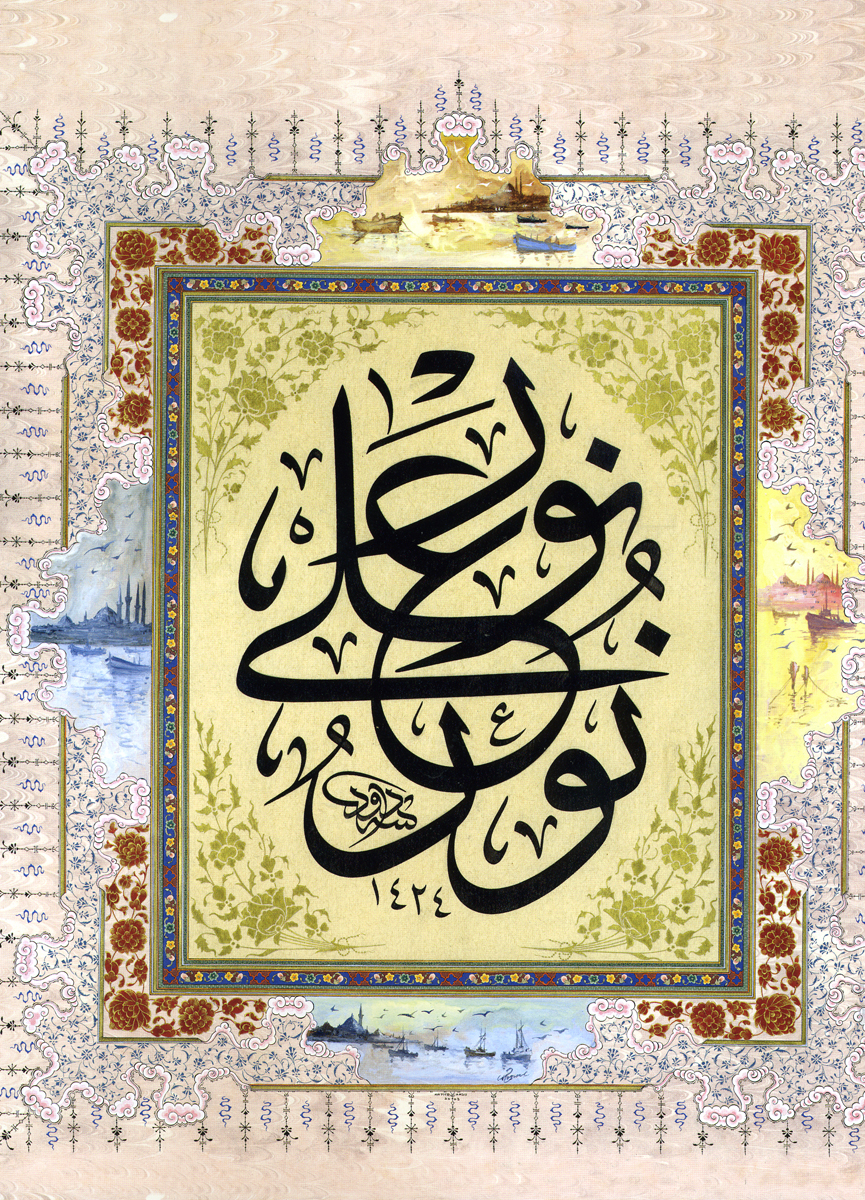 نُورٌ عَلَى نُورٍ
داود
١٤٢٤